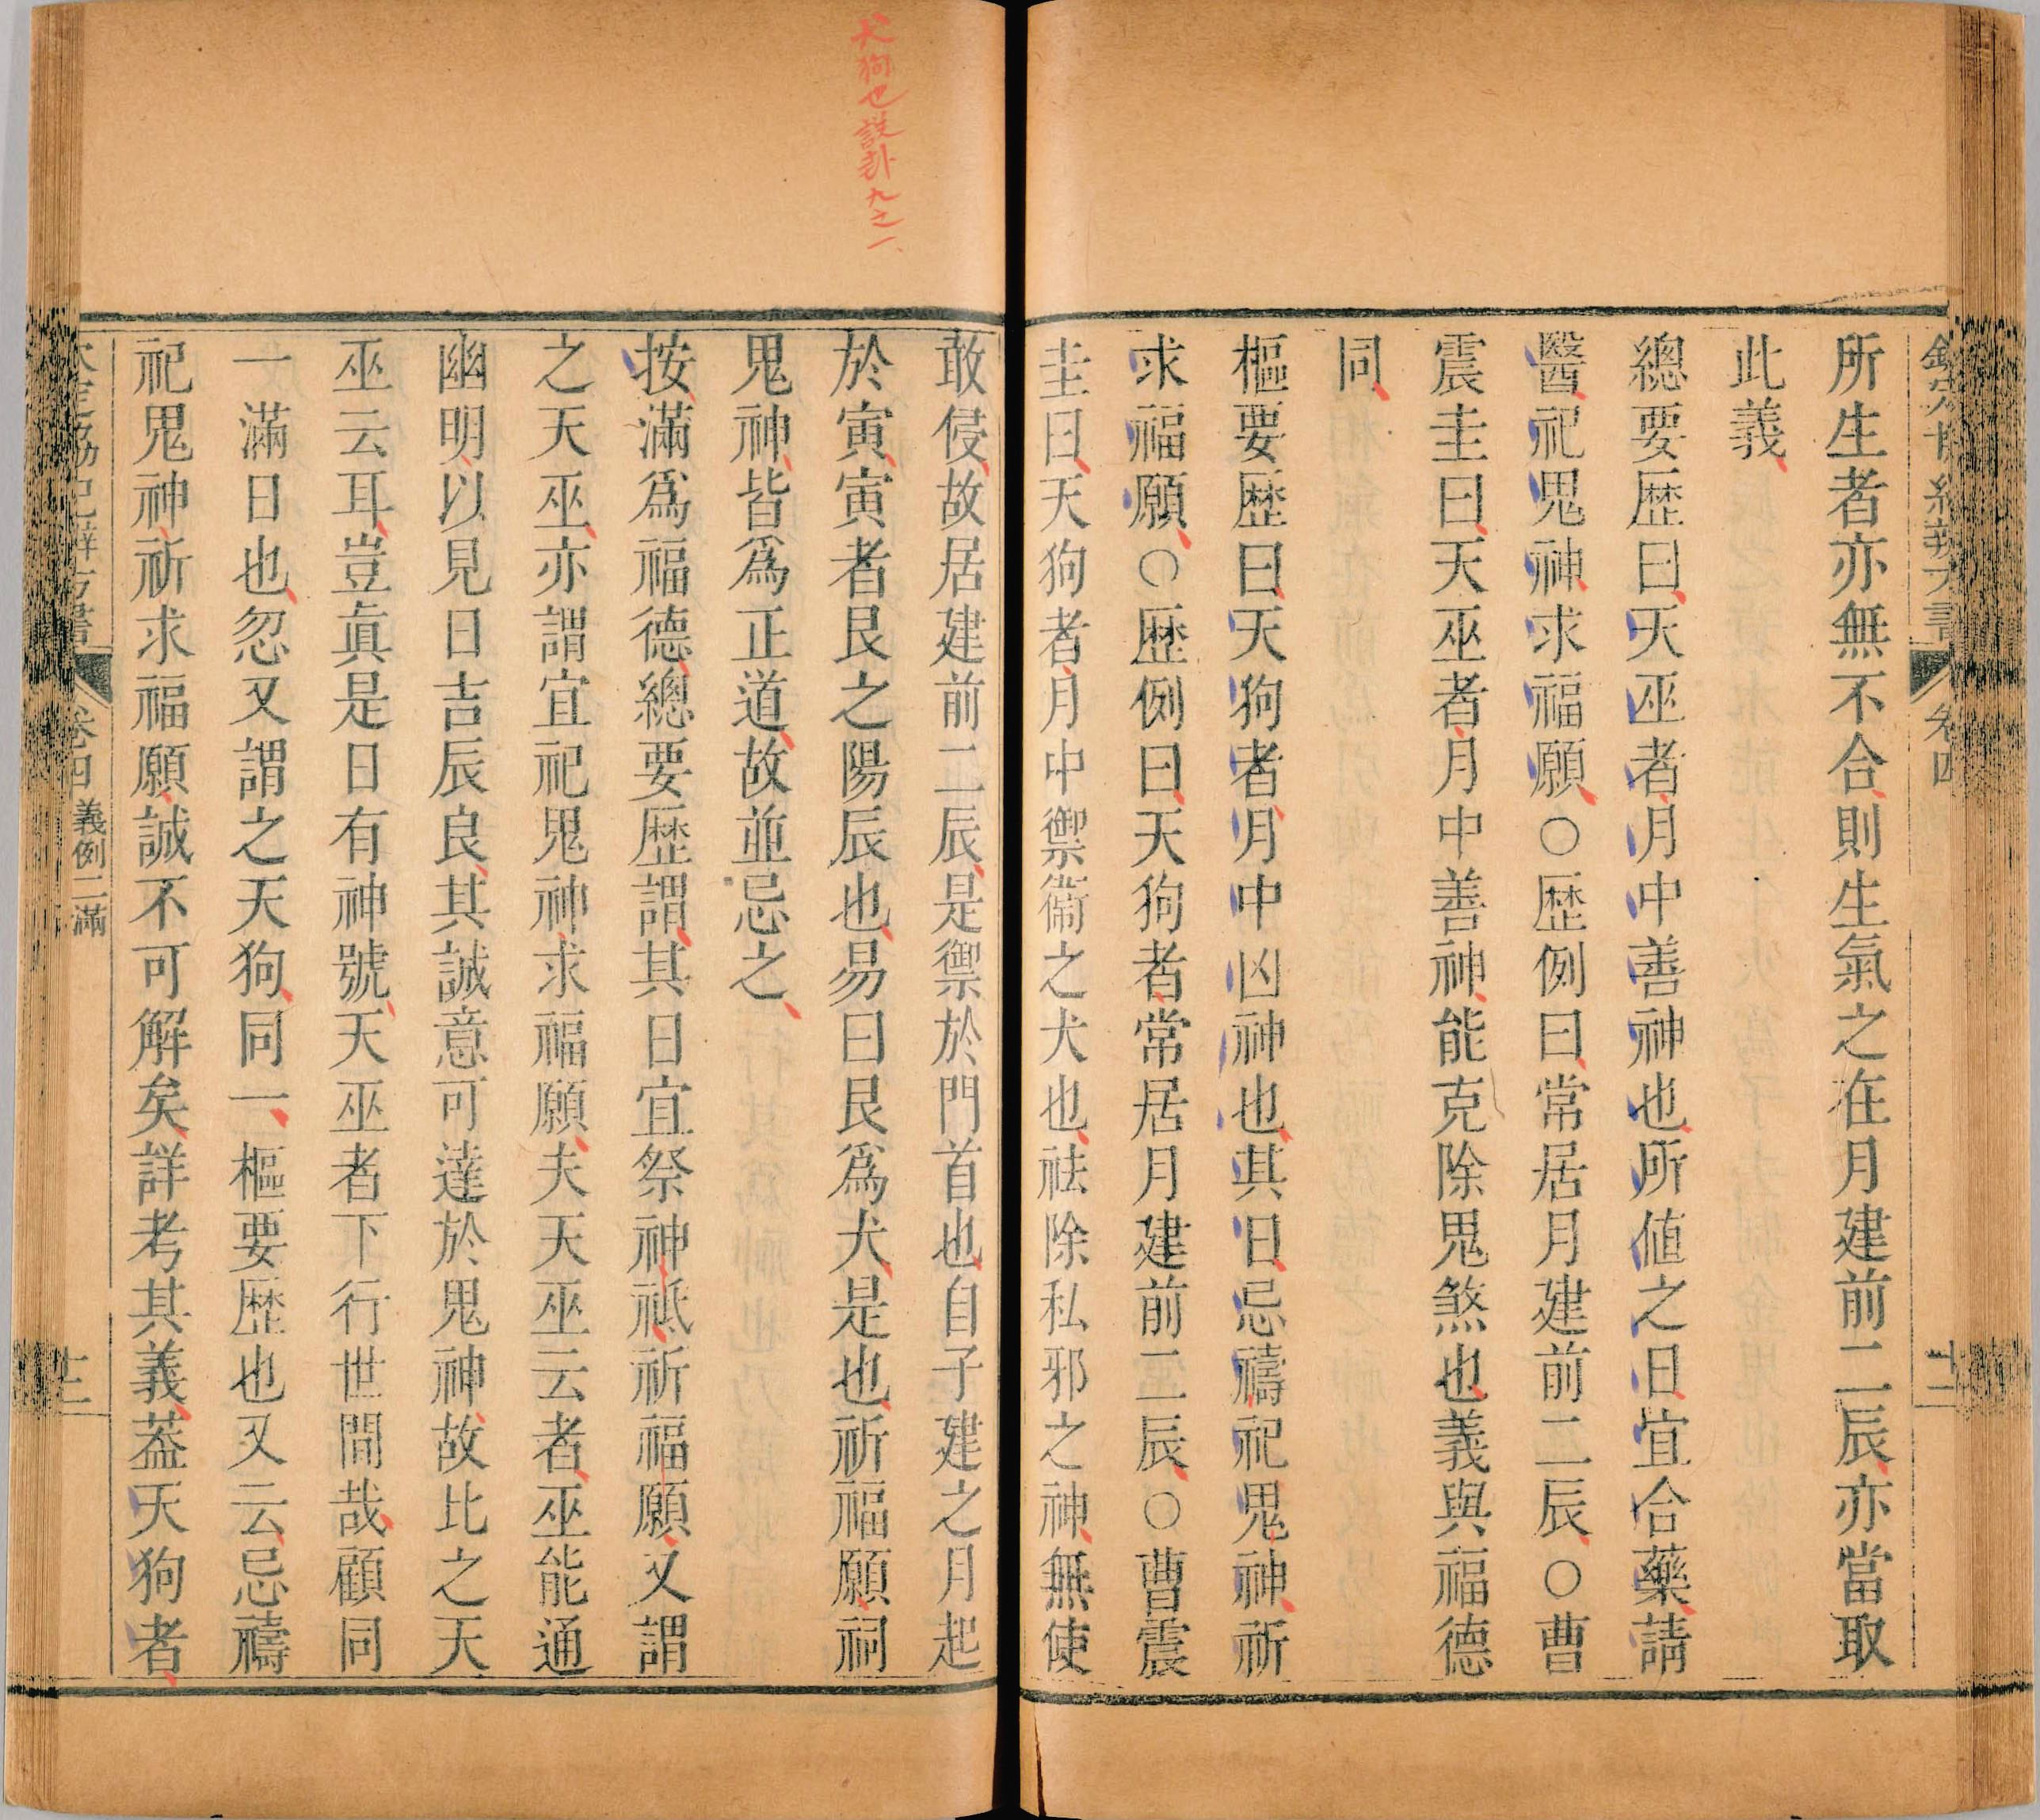 所生者亦無不合則生氣之在月建前二辰亦當取
此義
總要歴曰天巫者月中善神也所値之日宜合藥請
醫祀鬼神求福願○歴例曰常居月建前二辰○曹
震圭曰天巫者月中善神能克除鬼煞也義與福德
同
樞要歴曰天狗者月中凶神也其日忌禱祀鬼神祈
求福願○歴例曰天狗者常居月建前二辰○曹震
圭曰天狗者月中禦衞之犬也祛除私邪之神無使
犬狗也說卦九之一
敢侵故居建前二辰是禦於門首也自子建之月起
於寅寅者艮之陽辰也易曰艮爲犬是也祈福願祠
鬼神皆爲正道故並忌之
按滿爲福德總要歴謂其日宜祭神祗祈福願又謂
之天巫亦謂宜祀鬼神求福願夫天巫云者巫能通
幽明以見日吉辰良其誠意可達於鬼神故比之天
巫云耳豈眞是日有神號天巫者下行世間哉顧同
一滿日也忽又謂之天狗同一樞要歴也又云忌禱
祀鬼神祈求福願誠不可解矣詳考其義葢天狗者
卷四 義例二滿